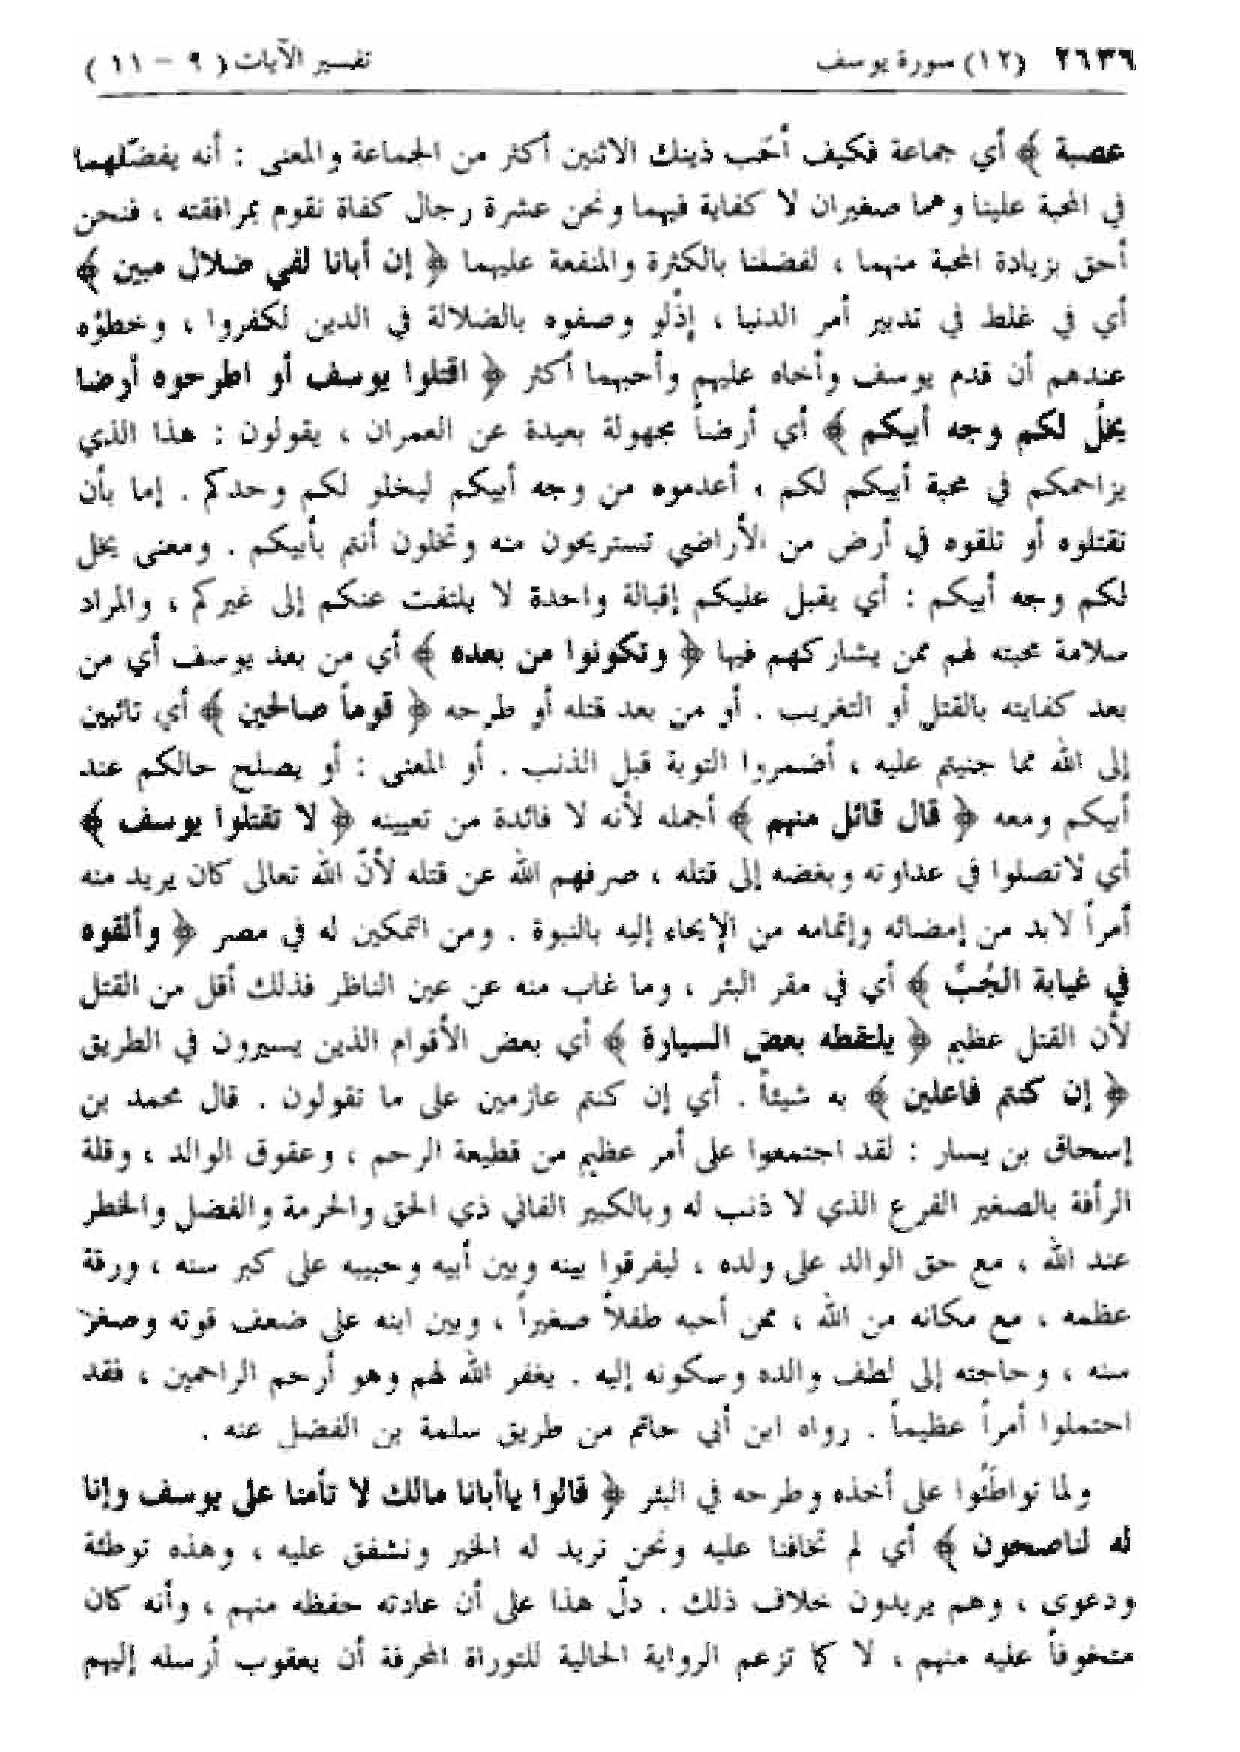 ٢٦٣٦ (١٢) سورة يوسف تفسير الآيات ( ٩ - ١١ )
عصبة ﴾ أي جماعة فكيف أحَب ذينك الاثنين أكثر من الجماعة والمعنى : أنه يفضّلهما
في المحبة علينا وهما صغيران لا كفاية فيهما ونحن عشرة رجال كفاة نقوم بمرافقته ، فنحن
أحق بزيادة المحبة منهما ، لفضلنا بالكثرة والمنفعة عليهما ﴿ إن أبانا لفي ضلال مبين ﴾
أي في غلط في تدبير أمر الدنيا ، إذْلو وصفوه بالضلالة في الدين لكفروا ، وخطؤه
عندهم أن قدم يوسف وأخاه عليهم وأحبهما أكثر ﴿ اقتلوا يوسف أو اطرحوه أرضا
يخلُ لكم وجه أبيكم ﴾ أي أرضاً مجهولة بعيدة عن العمران ، يقولون : هذا الذي
يزاحمكم في محبة أبيكم لكم ، أعدموه من وجه أبيكم ليخلو لكم وحدكم . إما بأن
تقتلوه أو تلقوه في أرض من الأراضي تستريحون منه وتخلون أنتم بأبيكم . ومعنى يخل
لكم وجه أبيكم : أي يقبل عليكم إقبالة واحدة لا يلتفت عنكم إلى غيركم ، والمراد
سلامة محبته لهم ممن يشاركهم فيها ﴿ وتكونوا من بعده ﴾ أي من بعد يوسف أي من
بعد كفايته بالقتل أو التغريب . أو من بعد قتله أو طرحه ﴿ قوماً صالحين ﴾ أي تائبين
إلى الله مما جنيتم عليه ، أضمروا التوبة قبل الذنب . أو المعنى : أو يصلح حالكم عند
أبيكم ومعه ﴿ قال قائل منهم ﴾ أجمله لأنه لا فائدة من تعيينه ﴿ لا تقتلوا يوسف ﴾
أي لاتصلوا في عداوته وبغضه إلى قتله ، صرفهم الله عن قتله لأنّ الله تعالى كان يريد منه
أمراً لابد من إمضائه وإتمامه من الإيحاء إليه بالنبوة . ومن التمكين له في مصر ﴿ وألقوه
في غيابة الجُبّ ﴾ أي في مقر البئر ، وما غاب منه عن عين الناظر فذلك أقل من القتل
لأن القتل عظيم ﴿ يلتقطه بعض السيارة ﴾ أي بعض الأقوام الذين يسيرون في الطريق
﴿ إن كنتم فاعلين ﴾ به شيئاً . أي إن كنتم عازمين على ما تقولون . قال محمد بن
إسحاق بن يسار : لقد اجتمعوا على أمر عظيم من قطيعة الرحم ، وعقوق الوالد ، وقلة
الرأفة بالصغير الفرع الذي لا ذنب له وبالكبير الفاني ذي الحق والحرمة والفضل والخطر
عند الله ، مع حق الوالد على ولده ، ليفرقوا بينه وبين أبيه وحبيبه على كبر سنه ، ورقة
عظمه ، مع مكانه من الله ، ممن أحبه طفلاً صغيراً ، وبين ابنه على ضعف قوته وصغر
سنه ، وحاجته إلى لطف والده وسكونه إليه . يغفر الله لهم وهو أرحم الراحمين ، فقد
احتملوا أمراً عظيماً . رواه ابن أبي حاتم من طريق سلمة بن الفضل عنه .
ولما تواطَئوا على أخذه وطرحه في البئر ﴿ قالوا ياأبانا مالك لا تأمنا على يوسف وإنا
له لناصحون ﴾ أي لم تخافنا عليه ونحن نريد له الخير ونشفق عليه ، وهذه توطئة
ودعوى ، وهم يريدون خلاف ذلك . دلّ هذا على أن عادته حفظه منهم ، وأنه كان
متخوفاً عليه منهم ، لا كما تزعم الرواية الحالية للتوراة المحرفة أن يعقوب أرسله إليهم